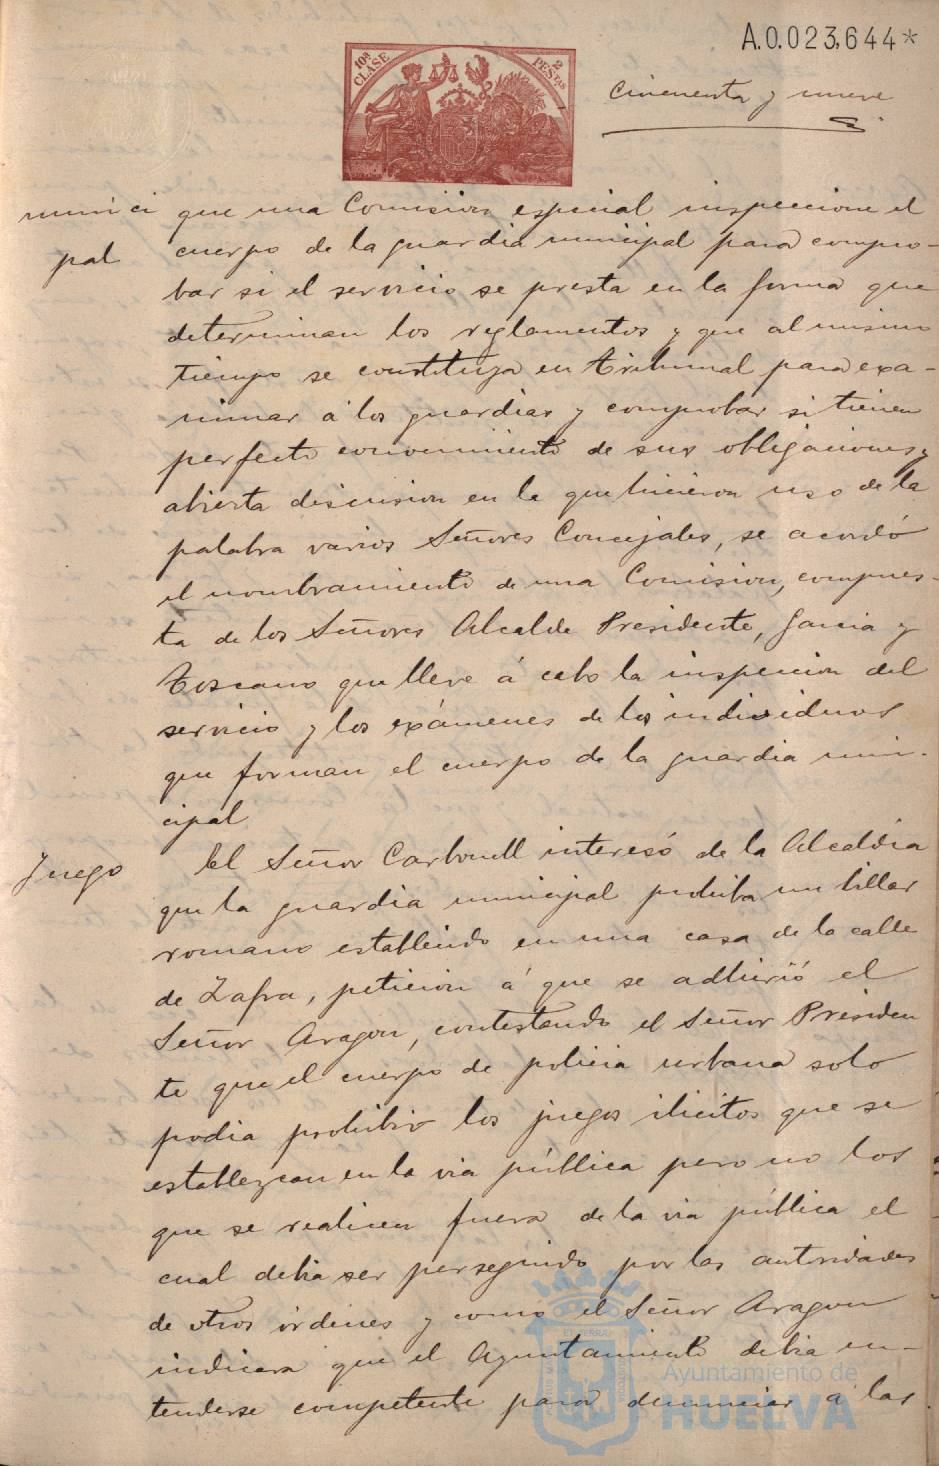 A.0.023,644*
10ª CLASE
2 PESTAS
Cincuenta y nueve
munici
pal
que una Comision especial inspeccione el
cuerpo de la guardia municipal para compro-
bar si el servicio se presta en la forma que
determinan los reglamentos y que al mismo
tiempo se constituya en tribunal para exa-
minar á los guardias y comprobar si tienen
perfecto conocimiento de sus obligaciones y
abierta discusion en la que hicieron uso de la
palabra varios Señores Concejales, se acordó
el nombramiento de una Comision, compues-
ta de los Señores Alcalde Presidente, Garcia y
Toscano que lleve á cabo la inspeccion del
servicio y los exámenes de los individuos
que forman el cuerpo de la guardia muni-
cipal
Juego
El Señor Carbonell interesó de la Alcaldia
que la guardia municipal prohiba un billar
romano establecido en una casa de la calle
de Zafra, peticion á que se adhirió el
Señor Aragon, contestando el Señor Presiden
te que el cuerpo de policia urbana solo
podia prohibir los juegos ilicitos que se
establezcan en la via pública pero no los
que se realicen fuera de la via pública el
cual debia ser perseguido por las autoridades
de otros órdenes y como el Señor Aragon
indicara que el Ayuntamiento debia en-
tenderse competente para denunciar á las
Ayuntamiento de
HUELVA